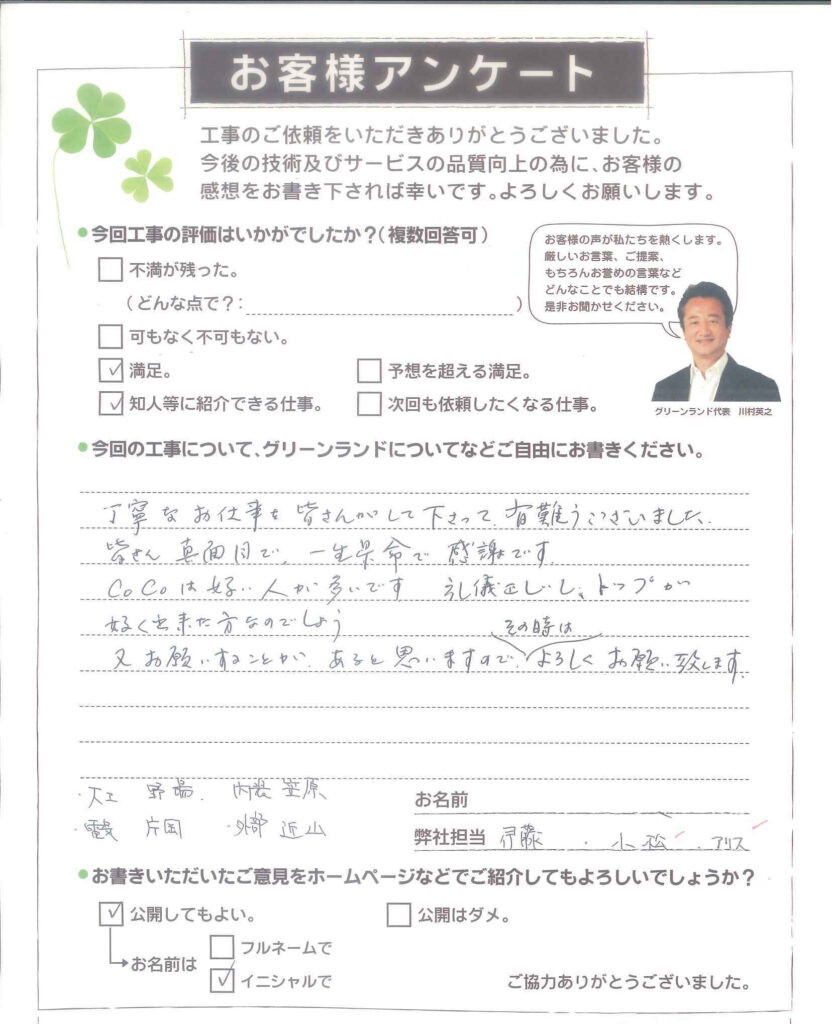 お客様アンケート
工事のご依頼をいただきありがとうございました。
今後の技術及びサービスの品質向上の為に、お客様の
感想をお書き下されば幸いです。よろしくお願いします。
今回工事の評価はいかがでしたか?(複数回答可)
不満が残った。
(どんな点で?: )
可もなく不可もない。
満足。
予想を超える満足。
知人等に紹介できる仕事。
次回も依頼したくなる仕事。
お客様の声が私たちを熱くします。
厳しいお言葉、ご提案、
もちろんお誉めの言葉など
どんなことでも結構です。
是非お聞かせください。
グリーンランド代表 川村英之
今回の工事について、グリーンランドについてなどご自由にお書きください。
丁寧なお仕事を皆さんがして下さって、有難うございました、
皆さん真面目で、一生県命で感謝です.
CoCoは好い人が多いです 礼儀正しいし、トップが
好く出来た方なのでしょう
又お願いすることが、あると思いますので、その時はよろしくお願い致します.
・大工 野場. 内装 笠原
・電気 片国 ・外部 近山
お名前
弊社担当 伊藤 . 小松 . アリス
お書きいただいたご意見をホームページなどでご紹介してもよろしいでしょうか?
公開してもよい。
公開はダメ。
お名前は
フルネームで
イニシャルで
ご協力ありがとうございました。